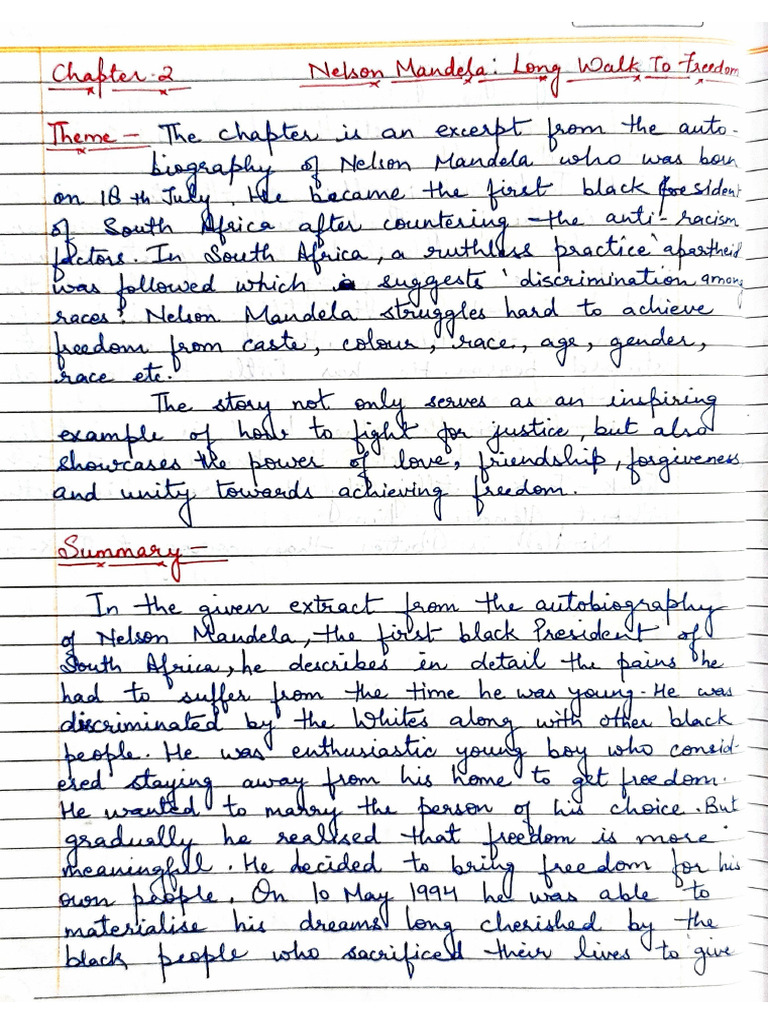 Chapter-2 Nelson Mandela: Long Walk To Freedom
Theme - The chapter is an excerpt from the auto-
biography of Nelson Mandela who was born
on 18th July. He became the first black President
of South Africa after countering the anti-racism
factors. In South Africa, a ruthless practice 'apartheid
was followed which suggests 'discrimination among
races'. Nelson Mandela struggles hard to achieve
freedom from caste, colour, race, age, gender,
race etc.
The story not only serves as an inspiring
example of how to fight for justice, but also
showcases the power of love, friendship, forgiveness
and unity towards achieving freedom.
Summary -
In the given extract from the autobiography
of Nelson Mandela, the first black President of
South Africa, he describes in detail the pains he
had to suffer from the time he was young. He was
discriminated by the Whites along with other black
people. He was enthusiastic young boy who consid-
ered staying away from his home to get freedom.
He wanted to marry the person of his choice. But
gradually he realised that freedom is more
meaningfull. He decided to bring freedom for his
own people. On 10 May 1994 he was able to
materialise his dreams long cherished by the
black people who sacrificed their lives to give